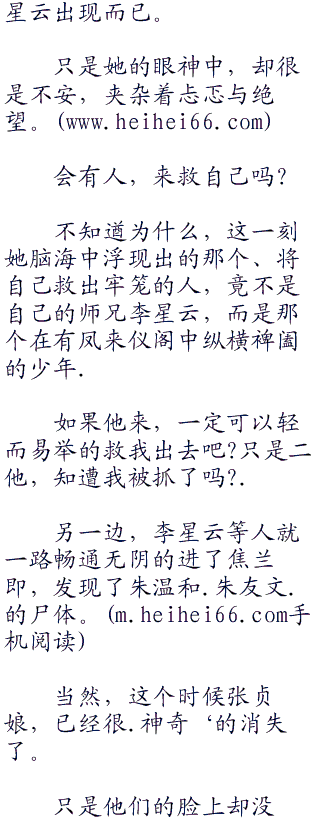 星云出现而已。
只是她的眼神中，却很
是不安，夹杂着忐忑与绝
望。(www.heihei66.com)
会有人，来救自己吗?
不知道为什么，这一刻
她脑海中浮现出的那个、将
自己救出牢笼的人，竟不是
自己的师兄李星云，而是那
个在有凤来仪阁中纵横裨阖
的少年.
如果他来，一定可以轻
而易举的救我出去吧?只是二
他，知遭我被抓了吗?.
另一边，李星云等人就
一路畅通无阴的进了焦兰
即，发现了朱温和.朱友文.
的尸体。(m.heihei66.com手
机阅读)
当然，这个时候张贞
娘，已经很.神奇‘的消失
了。
只是他们的脸上却没